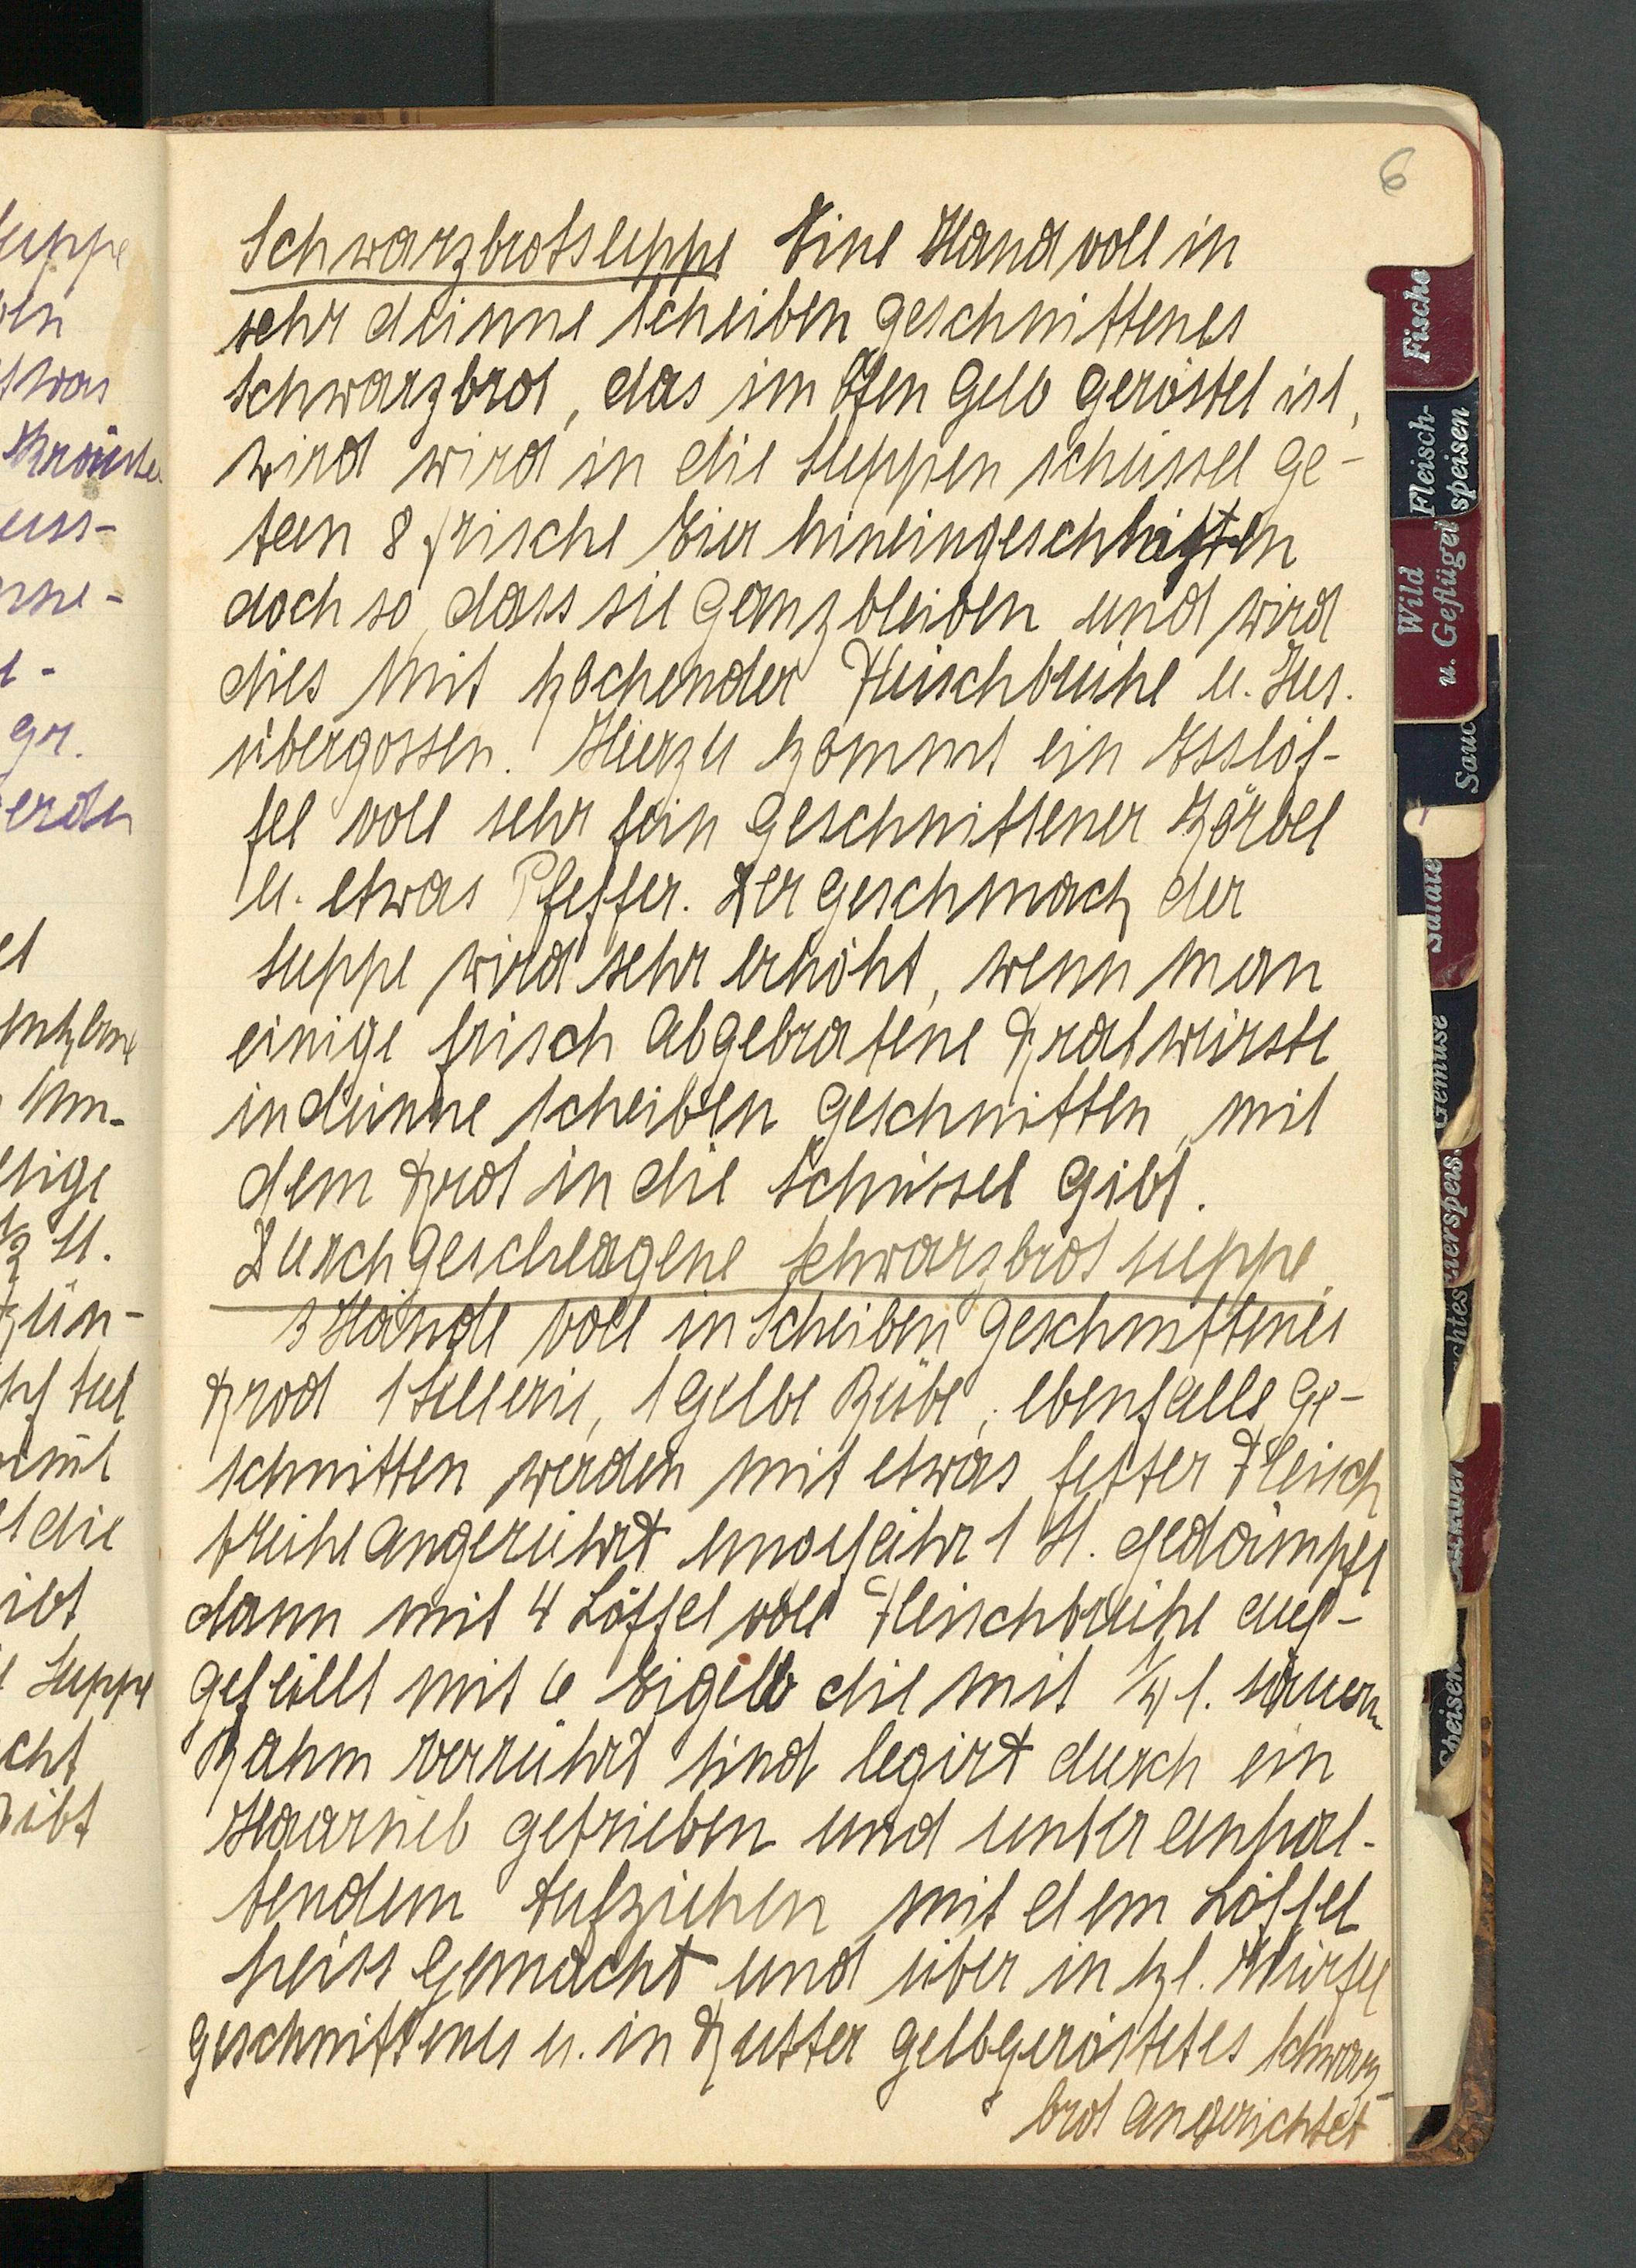 6
Schwarzbrotsuppe Eine Hand voll in
sehr dünne Scheiben geschnittenes
Schwarzbrot, das im Ofen gelb geröstet ist,
wird wird in die Suppenschüssel ge-
tan 8 frische Eier hineingeschlagen
doch so, dass sie ganz bleiben und wird
dies mit kochender Fleischbrühe u. Jus.
übergossen. Hierzu kommt ein Esslöf-
fel voll sehr fein geschnittener Körbel
u. etwas Pfeffer. Der Geschmack der
Suppe wird sehr erhöht, wenn man
einige frisch abgebratene Bratwürste
in dünne Scheiben geschnitten, mit
dem Brot in die Schüssel gibt.
Durchgeschlagene Schwarzbrotsuppe.
3 Hände voll in Scheiben geschnittenes
Brod 1 Sellerie, 1 gelbe Rübe, ebenfalls ge-
schnitten werden mit etwas fetter Fleisch
brühe angerührt ungefähr 1 St. gedämpft
dann mit 4 Löffel voll Fleischbrühe auf-
gefüllt mit 6 Eigelb die mit 1/4 l. sauern
Rahm verrührt sind legirt durch ein
Haarsieb getrieben und unter anhal-
tendem Aufziehen mit dem Löffel
heiss gemacht und über in kl. Würfel
geschnittenes u. in Butter gelbgeröstetes Schwarz-
brot angerichtet
Fische
Fleisch-
speisen
Wild
u. Geflügel
Sauc
Salate
Gemüse
ierspeis.
uppe
en
twas
Kräuter
uss-
gr.
erden
tige
1/2 St.
ün-
die
ibt
Suppe
cht
ibt